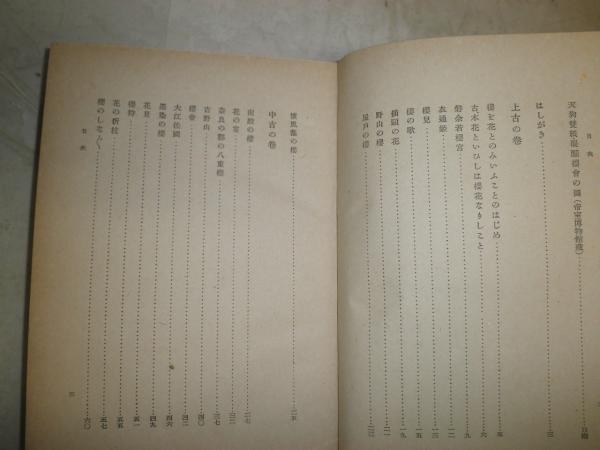 目次
天狗草紙醍醐櫻會の圖(帝室博物館藏)……口繪
はしがき……三
上古の卷
櫻を花とのみいふことのはじめ……五
古木花といひしは櫻花なりしこと……六
磐余若櫻宮……九
衣通姫……一二
櫻兒……一三
櫻の歌……一五
插頭の花……一九
野山の櫻……二一
屋戸の櫻……二三
懷風藻の櫻……二五
中古の卷
南殿の櫻……二七
花の宴……三二
奈良の都の八重櫻……三七
吉野山……四〇
櫻會……四二
大江佐國……四六
墨染の櫻……四九
花見……五一
櫻狩……五五
花の折枝……五七
櫻のしな〴〵……六〇
目次